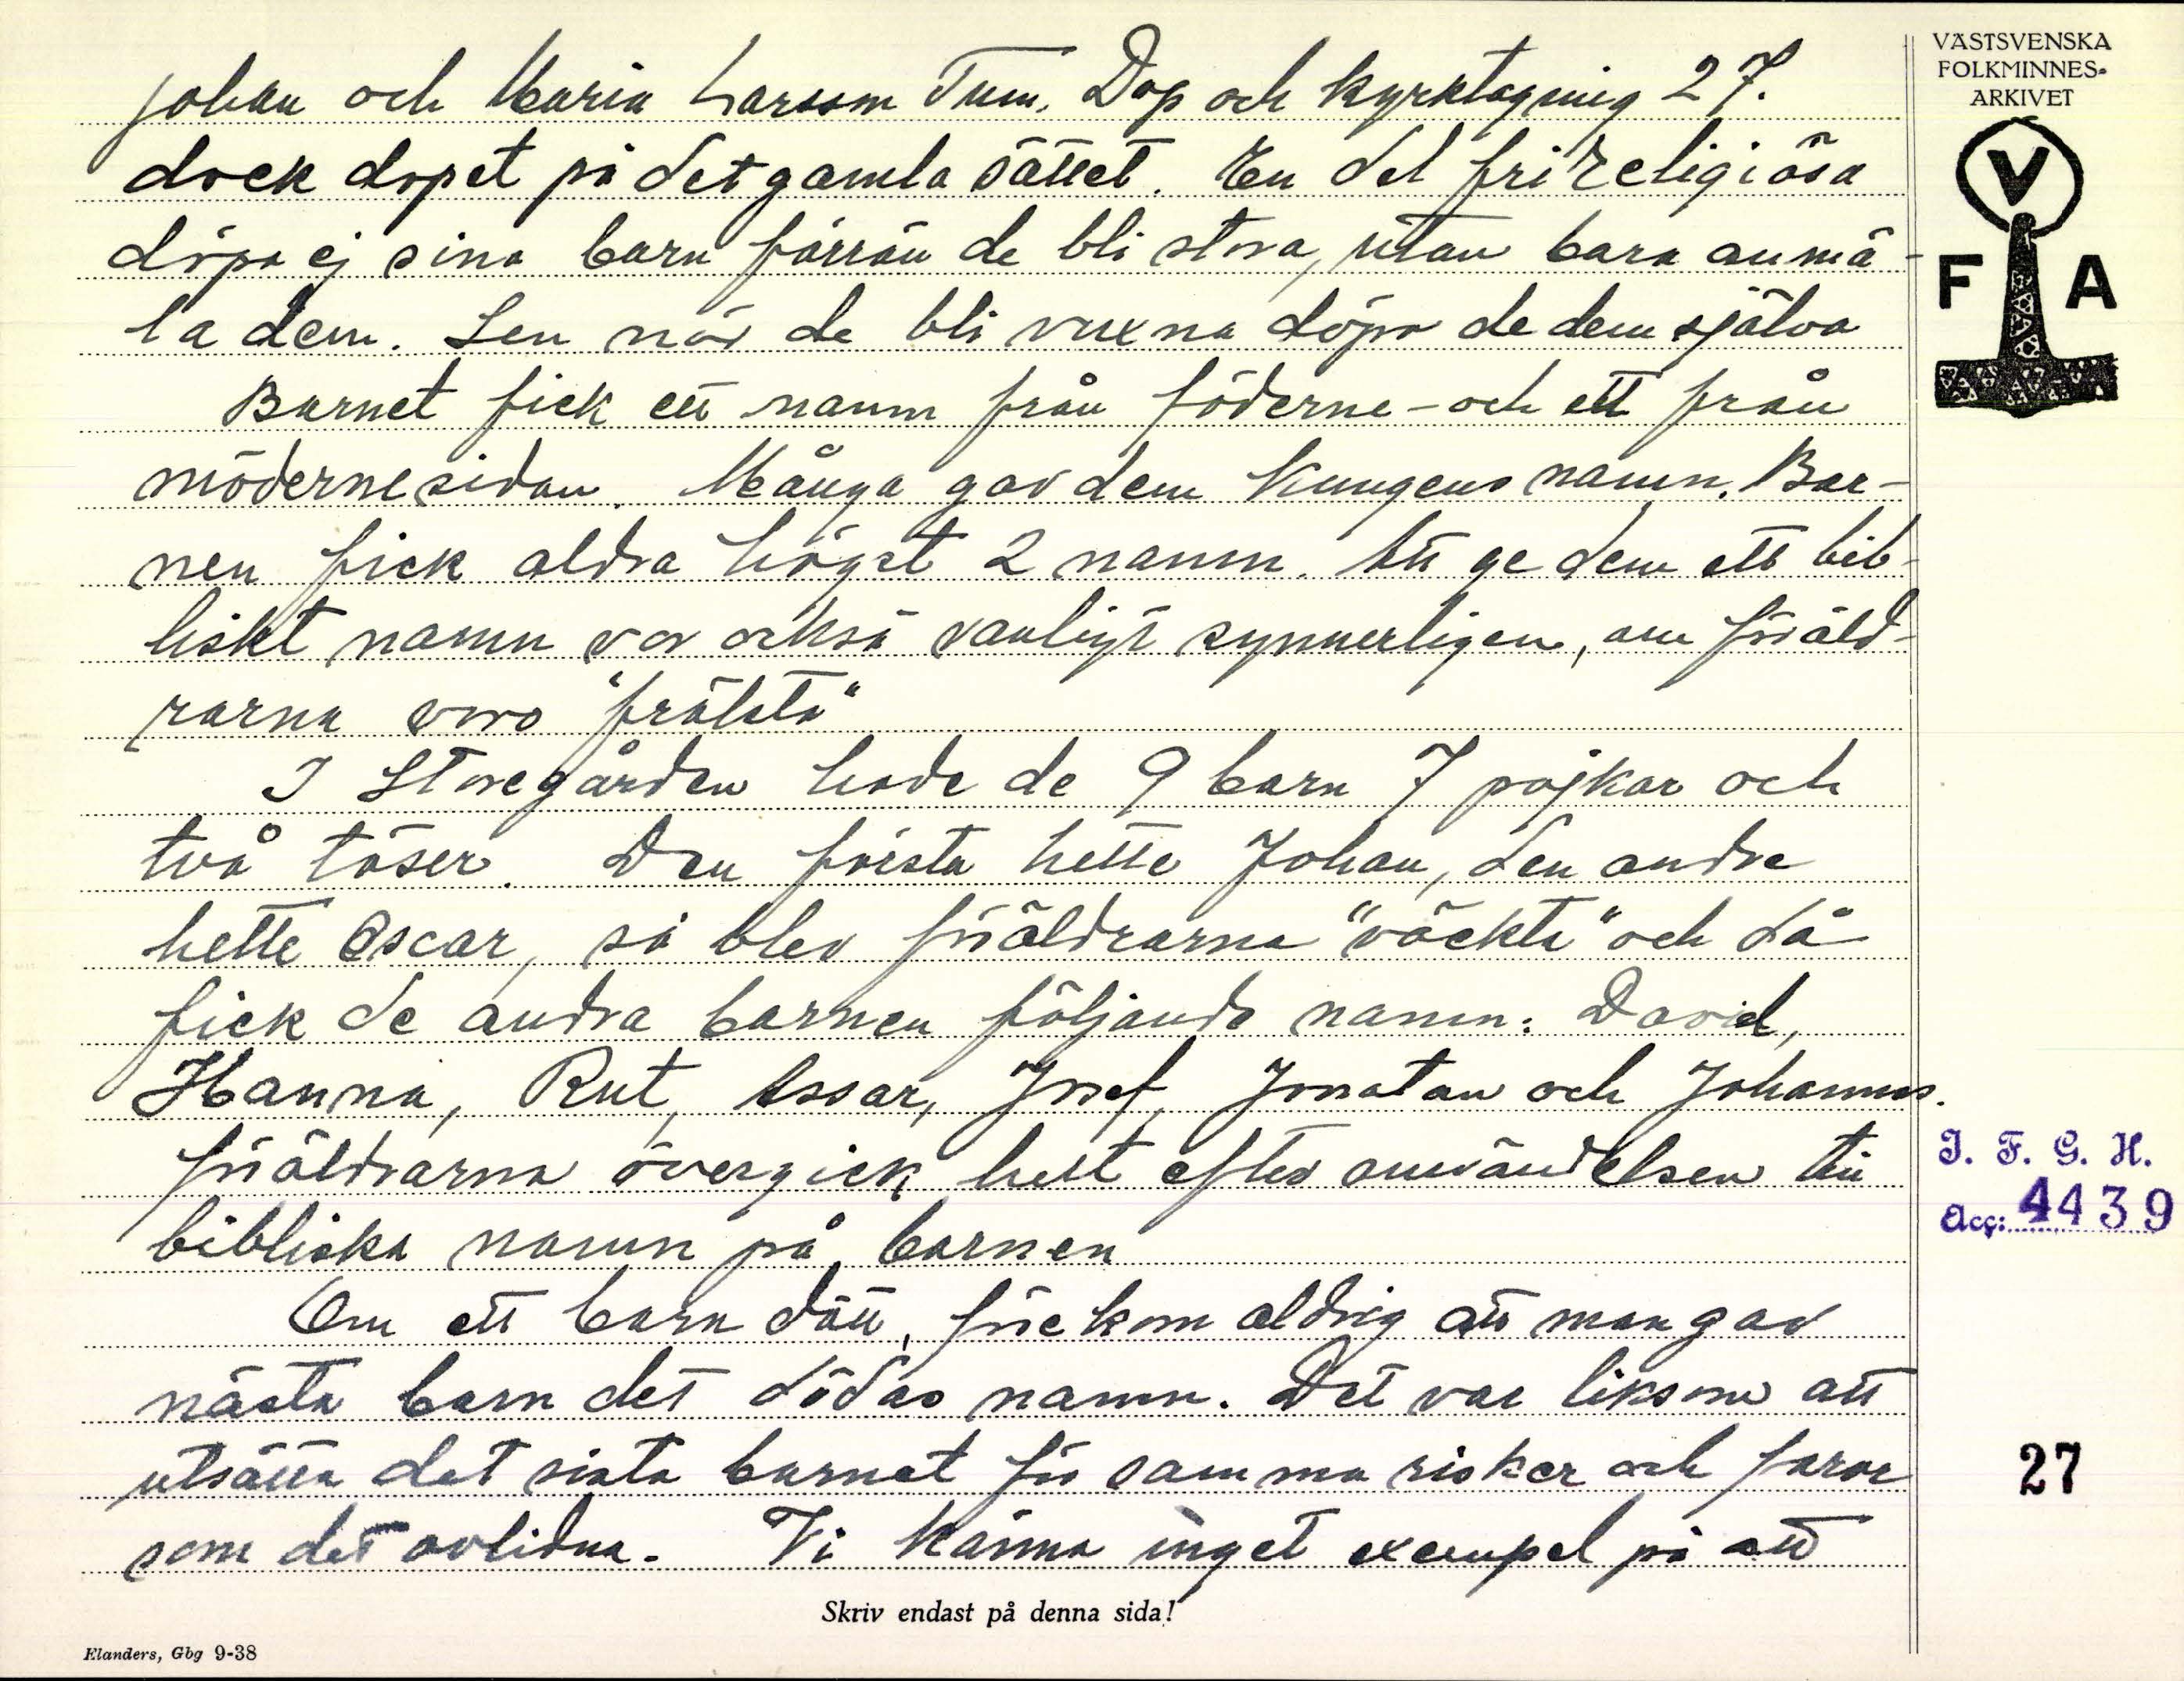 Johan och Maria Larsson Tum. Dop och kyrktagning 27.
dock dopet på det gamla sättet. En del frireligiösa
döpa ej sina barn förrän de bli stora, utan bara anmä-
la dem. Sen när de bli vuxna döpa de dem själva
Barnet fick ett namn från föderne- och ett från
mödernesidan. Många gav dem kungens namn. Bar-
nen fick aldra högst 2 namn. Att ge dem ett bib-
liskt namn var också vanligt synnerligen, om föräld-
rarna voro "frälsta"
I Storegården hade de 9 barn 7 pojkar och
två töser. Den första hette Johan, den andra
hette Oscar, så blev föräldrarna "väckta" och då
fick de andra barnen följande namn: David,
Hanna, Rut, Assar, Josef, Jonatan och Johannes.
föräldrarna övergick helt efter omvändelsen till
bibliska namn på barnen
Om ett barn dött, förekom aldrig att man gav
nästa barn det dödas namn. Det var liksom att
utsätta det sista barnet för samma risker och faror
som det avlidna. Vi känna inget exempel på att
Skriv endast på denna sida!
Elanders, Gbg 9-38
VÄSTSVENSKA
FOLKMINNES-
ARKIVET
V
F A
I. F. G. H.
Acc: 4439
27